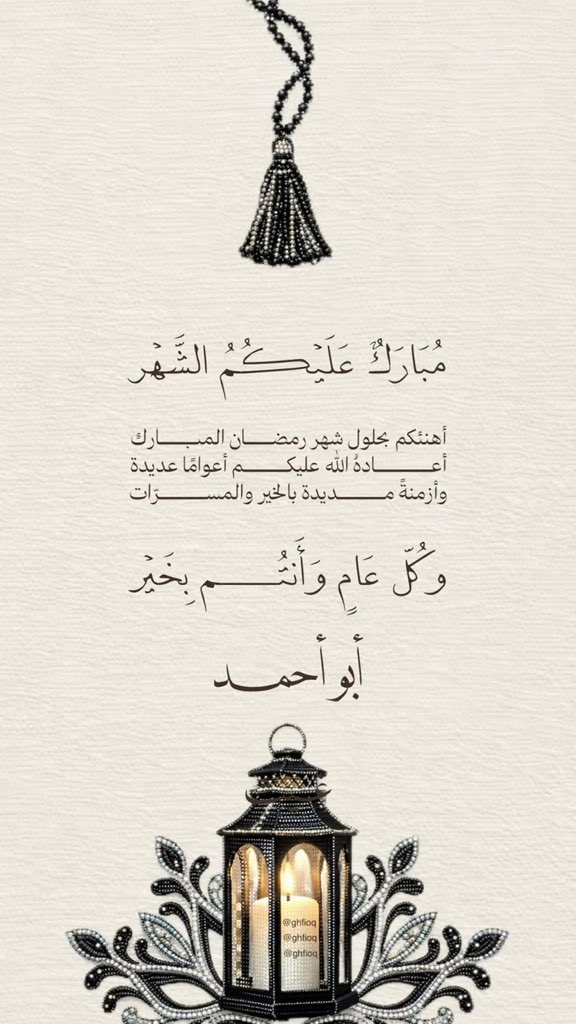 مُبَارَكٌ عَلَيْكُمُ الشَّهْر
أهنئكم بحلول شهر رمضان المبارك
أعادهُ الله عليكم أعوامًا عديدة
وأزمنةً مديدة بالخير والمسرّات
وَكُلّ عَامٍ وَأَنتُم بِخَيْر
أبو أحمد
@ghfioq
@ghfioq
@ghfioq